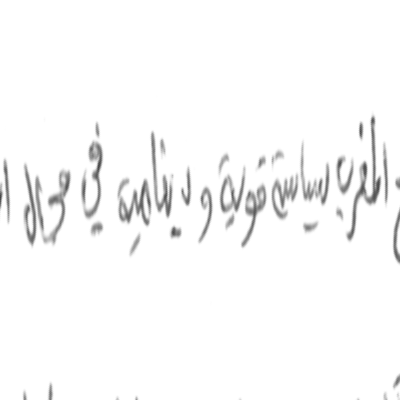 المغرب سياسة قوية و ديناميية في مجال